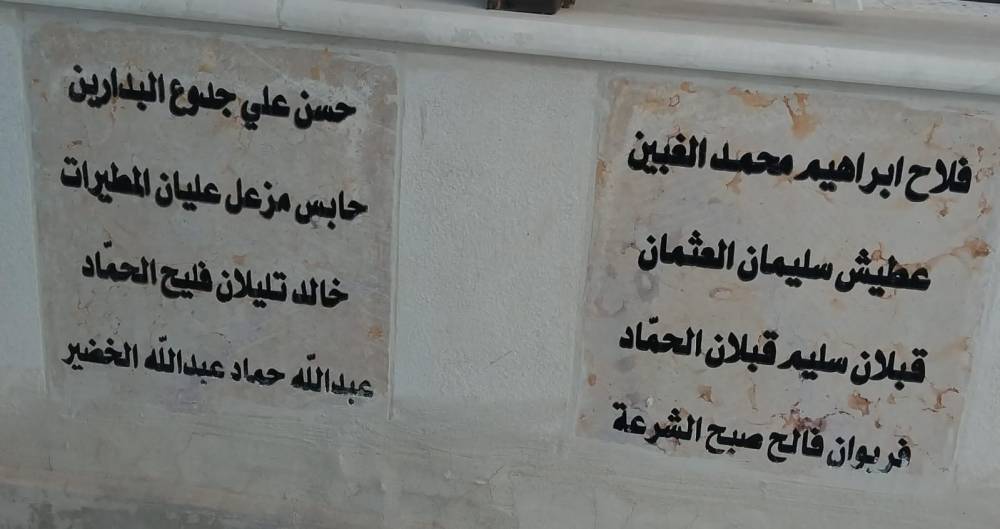 فلاح ابراهيم محمد الغبين
عطيش سليمان العثمان
قبلان سليم قبلان الحمّاد
فربوان فالح صبح الشرعة
حسن علي جدوع البدارين
حابس مزعل عليان المطيرات
خالد تليلان فليح الحمّاد
عبدالله حماد عبدالله الخضير